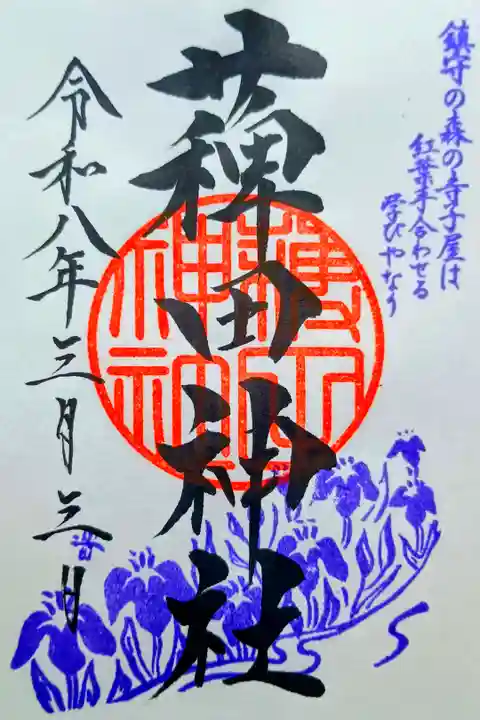 鎮守の森の寺子屋は
紅葉手合わせる
学びやなり
薭田神社
令和八年三月三日